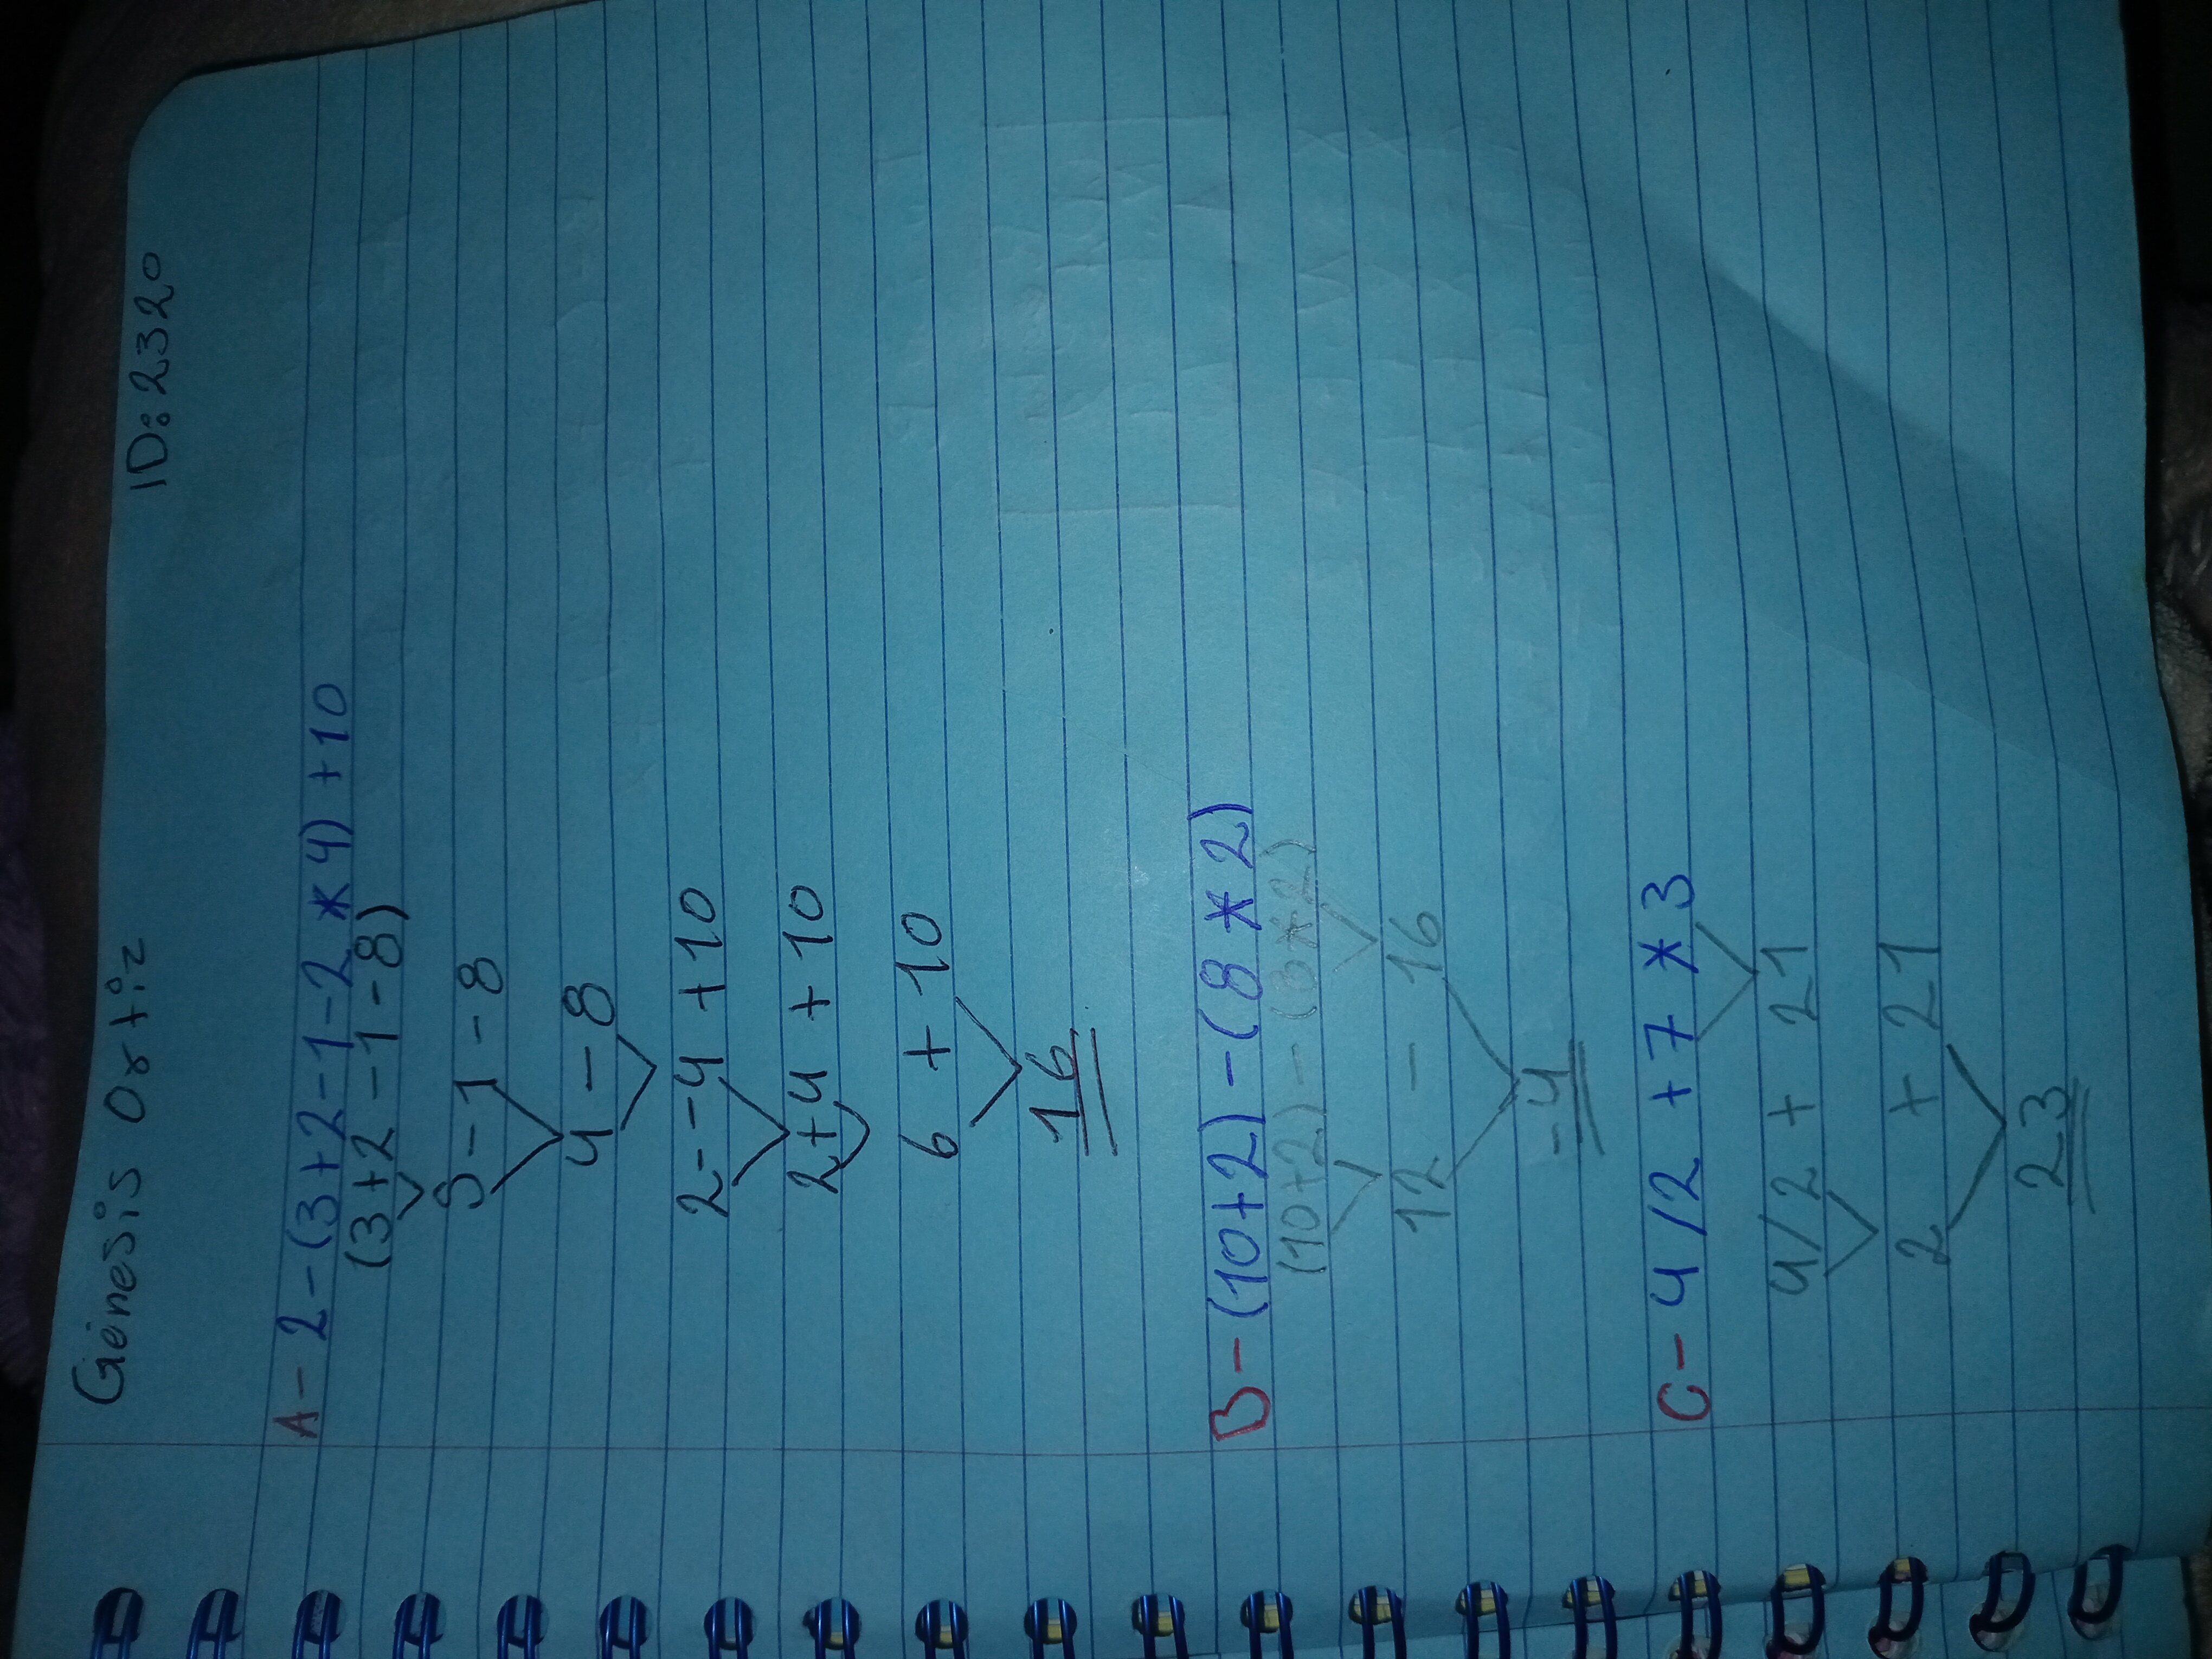 Génesis Ortiz ID: 2320
A- 2-(3+2-1-2*4)+10
(3+2-1-8)
5-1-8
4-8
2--4+10
2+4+10
6+10
16
B- (10+2)-(8*2)
(10+2)-(8*2)
12-16
-4
C- 4/2+7*3
4/2+21
2+21
23